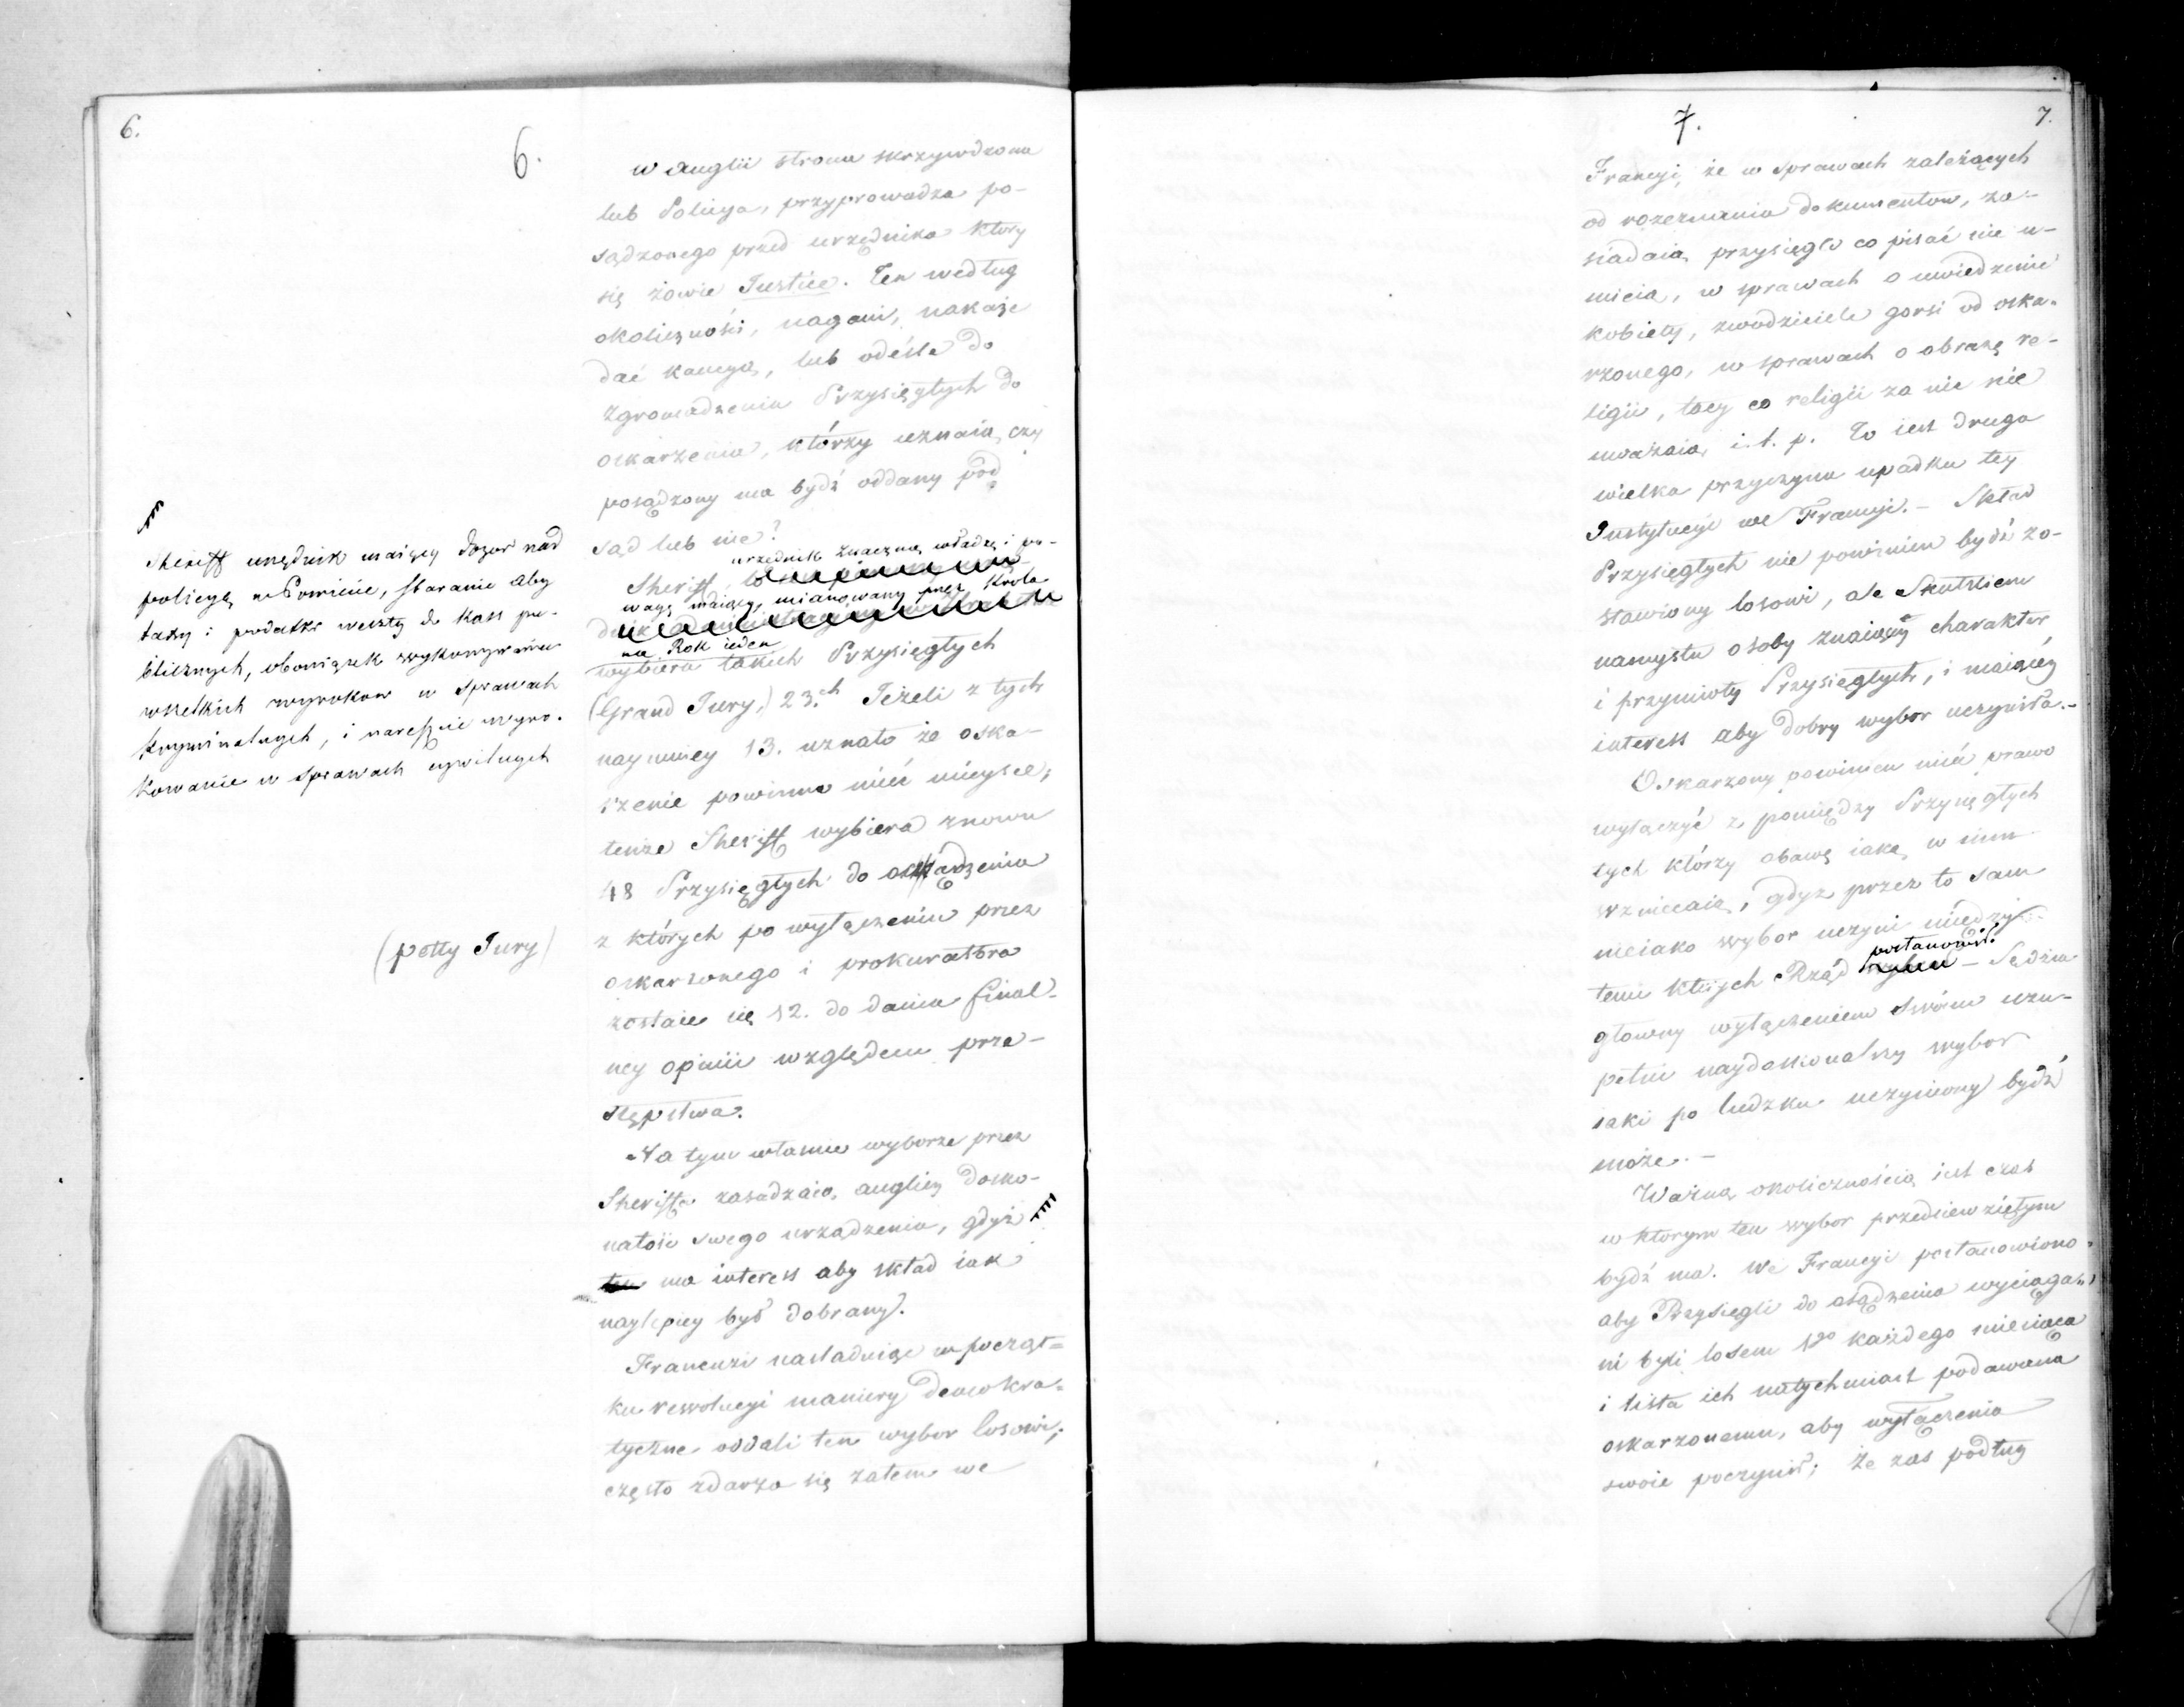 6.
6.
w Anglii strona skrzywdzona
lub Policya, przyprowadza po-
sądzonego przed urzędnika ktory
się zowie Justice. Ten według
okoliczności, nagani, nakaże
dać kaucyą, lub odeśle do
Zgromadzenia Przysięgłych do
oskarżenia, którzy uznaią, czy
posądzony ma bydź oddany pod
sąd lub nie?
urzędnik znaczną władzę i po-
Sheriff
wagę maiący, mianowany przez Krola
na Rok ieden
wybiera takich Przysięgłych
(Grand Jury,) 23.ch Jeżeli z tych
naymniey 13. uznało że oska-
rżenie powinno mieć mieysce,
tenże Sheriff wybiera znowu
48 Przysięgłych do osądzenia
z których po wyłączeniu przez
oskarżonego i prokuratora
zostaie się 12. do dania final-
ney opinii względem prze-
stępstwa.
Na tym własnie wyborze przez
Sheriffa zasadzaią anglicy dosko-
nałość swego urządzenia, gdyż
ten ma interess aby skład iak
naylepiey był dobrany.
Francuzi naśladuiąc w począt-
ku rewolucyi maniery demokra-
tyczne oddali ten wybor losowi;
często zdarza się zatem we
Sheriff urzędnik maiący dozor nad
policyą w Powiecie, staranie aby
taxy i podatki weszły do kass pu-
blicznych, obowiązek wykonywania
wszelkich wyrokow w sprawach
kryminalnych, i nareszcie wyro-
kowanie w sprawach cywilnych
(petty Jury)
7.
7.
Francyi, że w sprawach zależących
od rozeznania dokumentow, za-
siadaią przysięgli co pisać nie u-
mieią, w sprawach o uwiedzenie
kobiety, zwodziciele gorsi od oska-
rżonego, w sprawach o obrazę re-
ligii, tacy co religii za nic nie
uważaią i. t. p. To iest druga
wielka przyczyna upadku tey
Instytucyi we Francyi. - Skład
Przysięgłych nie powinien bydź zo-
stawiony losowi, ale Skutkiem
namysłu osoby znaiącey charakter
i przymioty Przysięgłych, i maiącey
interess aby dobry wybor uczyniła. -
Oskarżony powinien mieć prawo
wyłączyć z pomiędzy Przysięgłych
tych którzy obawę iaką w nim
wzniecaią, gdyż przez to sam
nieiako wybor uczyni między
temi ktorych Rząd postanowił. - Sędzia
głowny wyłączeniem swoim uzu-
pełni naydoskonalszy wybor
iaki po ludzku uczyniony bydź
może. -
Ważną okolicznością iest czas
w ktorym ten wybor przedsiewziętym
bydź ma. We Francyi postanowiono
aby Przysięgli do osądzenia wyciąga-
ni byli losem 1go każdego miesiąca
i lista ich natychmiast podawana
oskarżonemu, aby wyłączenia
swoie poczynił; że zas podług